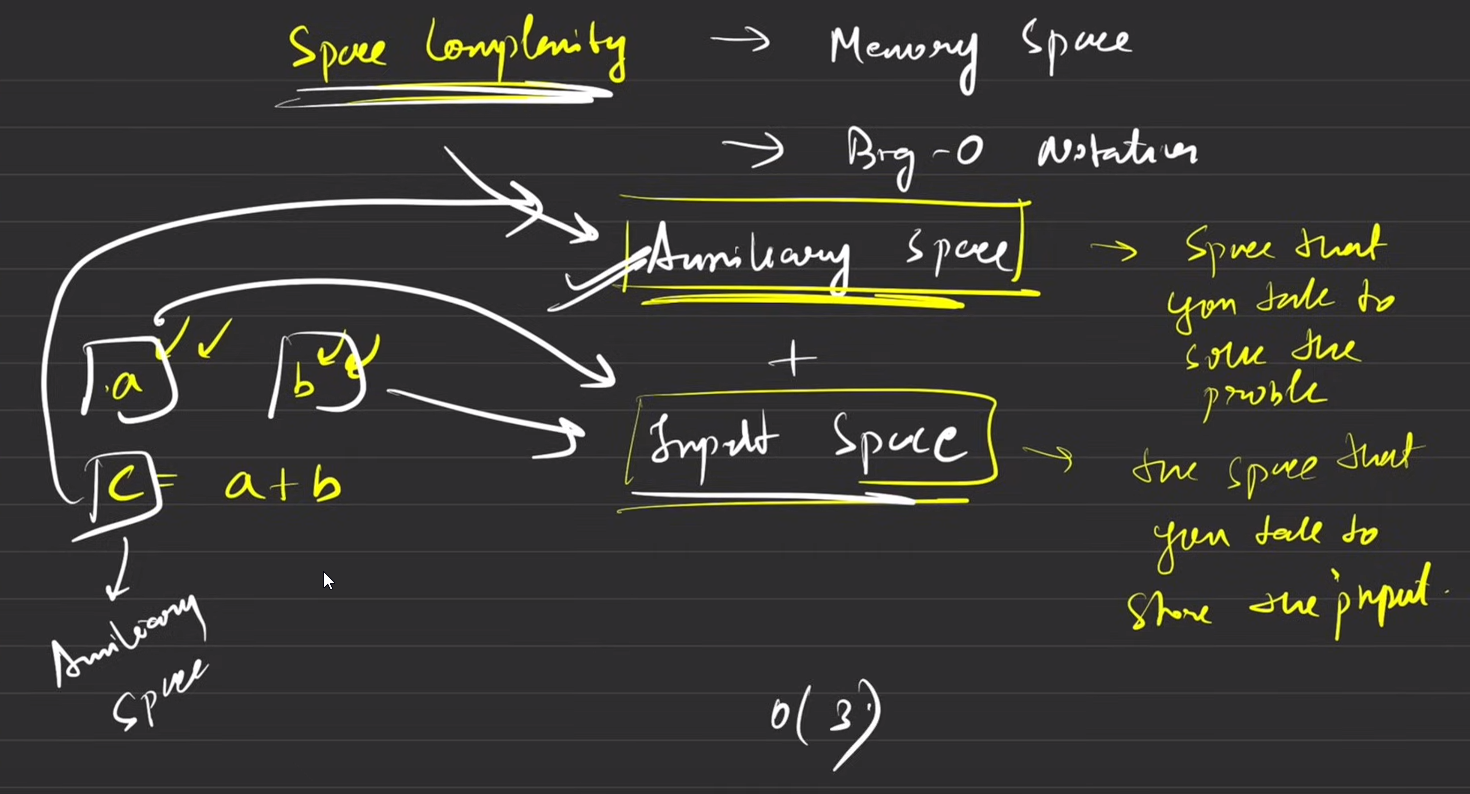 Space Complexity → Memory Space
→ Big-O Notation
Auxiliary Space → Space that
you take to
solve the
proble
+
Input Space → the space that
you take to
store the input.
a b
c = a+b
Auxiliary
Space
O(3)